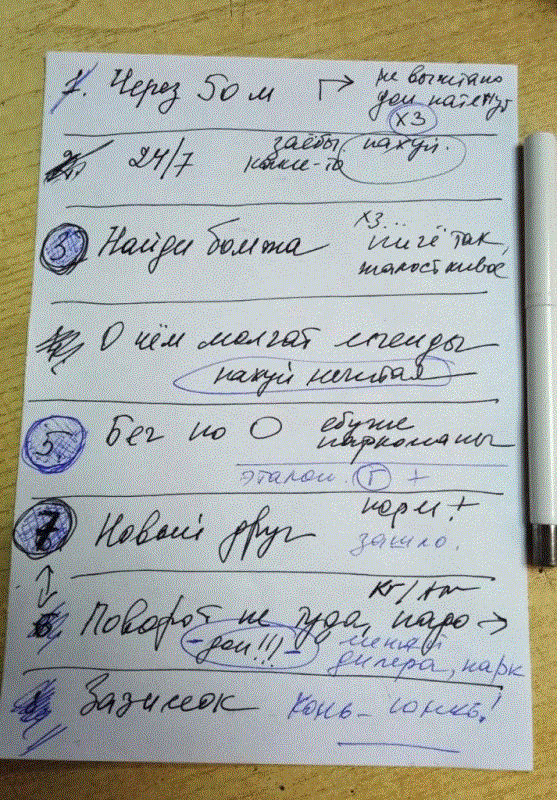 1. Через 50 м
не вычитано
доп натянут
ХЗ
24/7
заёбы
какие-то
нахуй.
3. Найди бомжа
ХЗ...
ниче так,
жалостливое
О чём молчат легенды
нахуй нечитая
5. Бег по О
ебучие
наркоманы
эталон. Г +
7. Новый друг
норм +
зашло.
Поворот не туда, надо →
- доп!!! -
менять
дилера, нарк
Зазимок
Конь-юнкь!